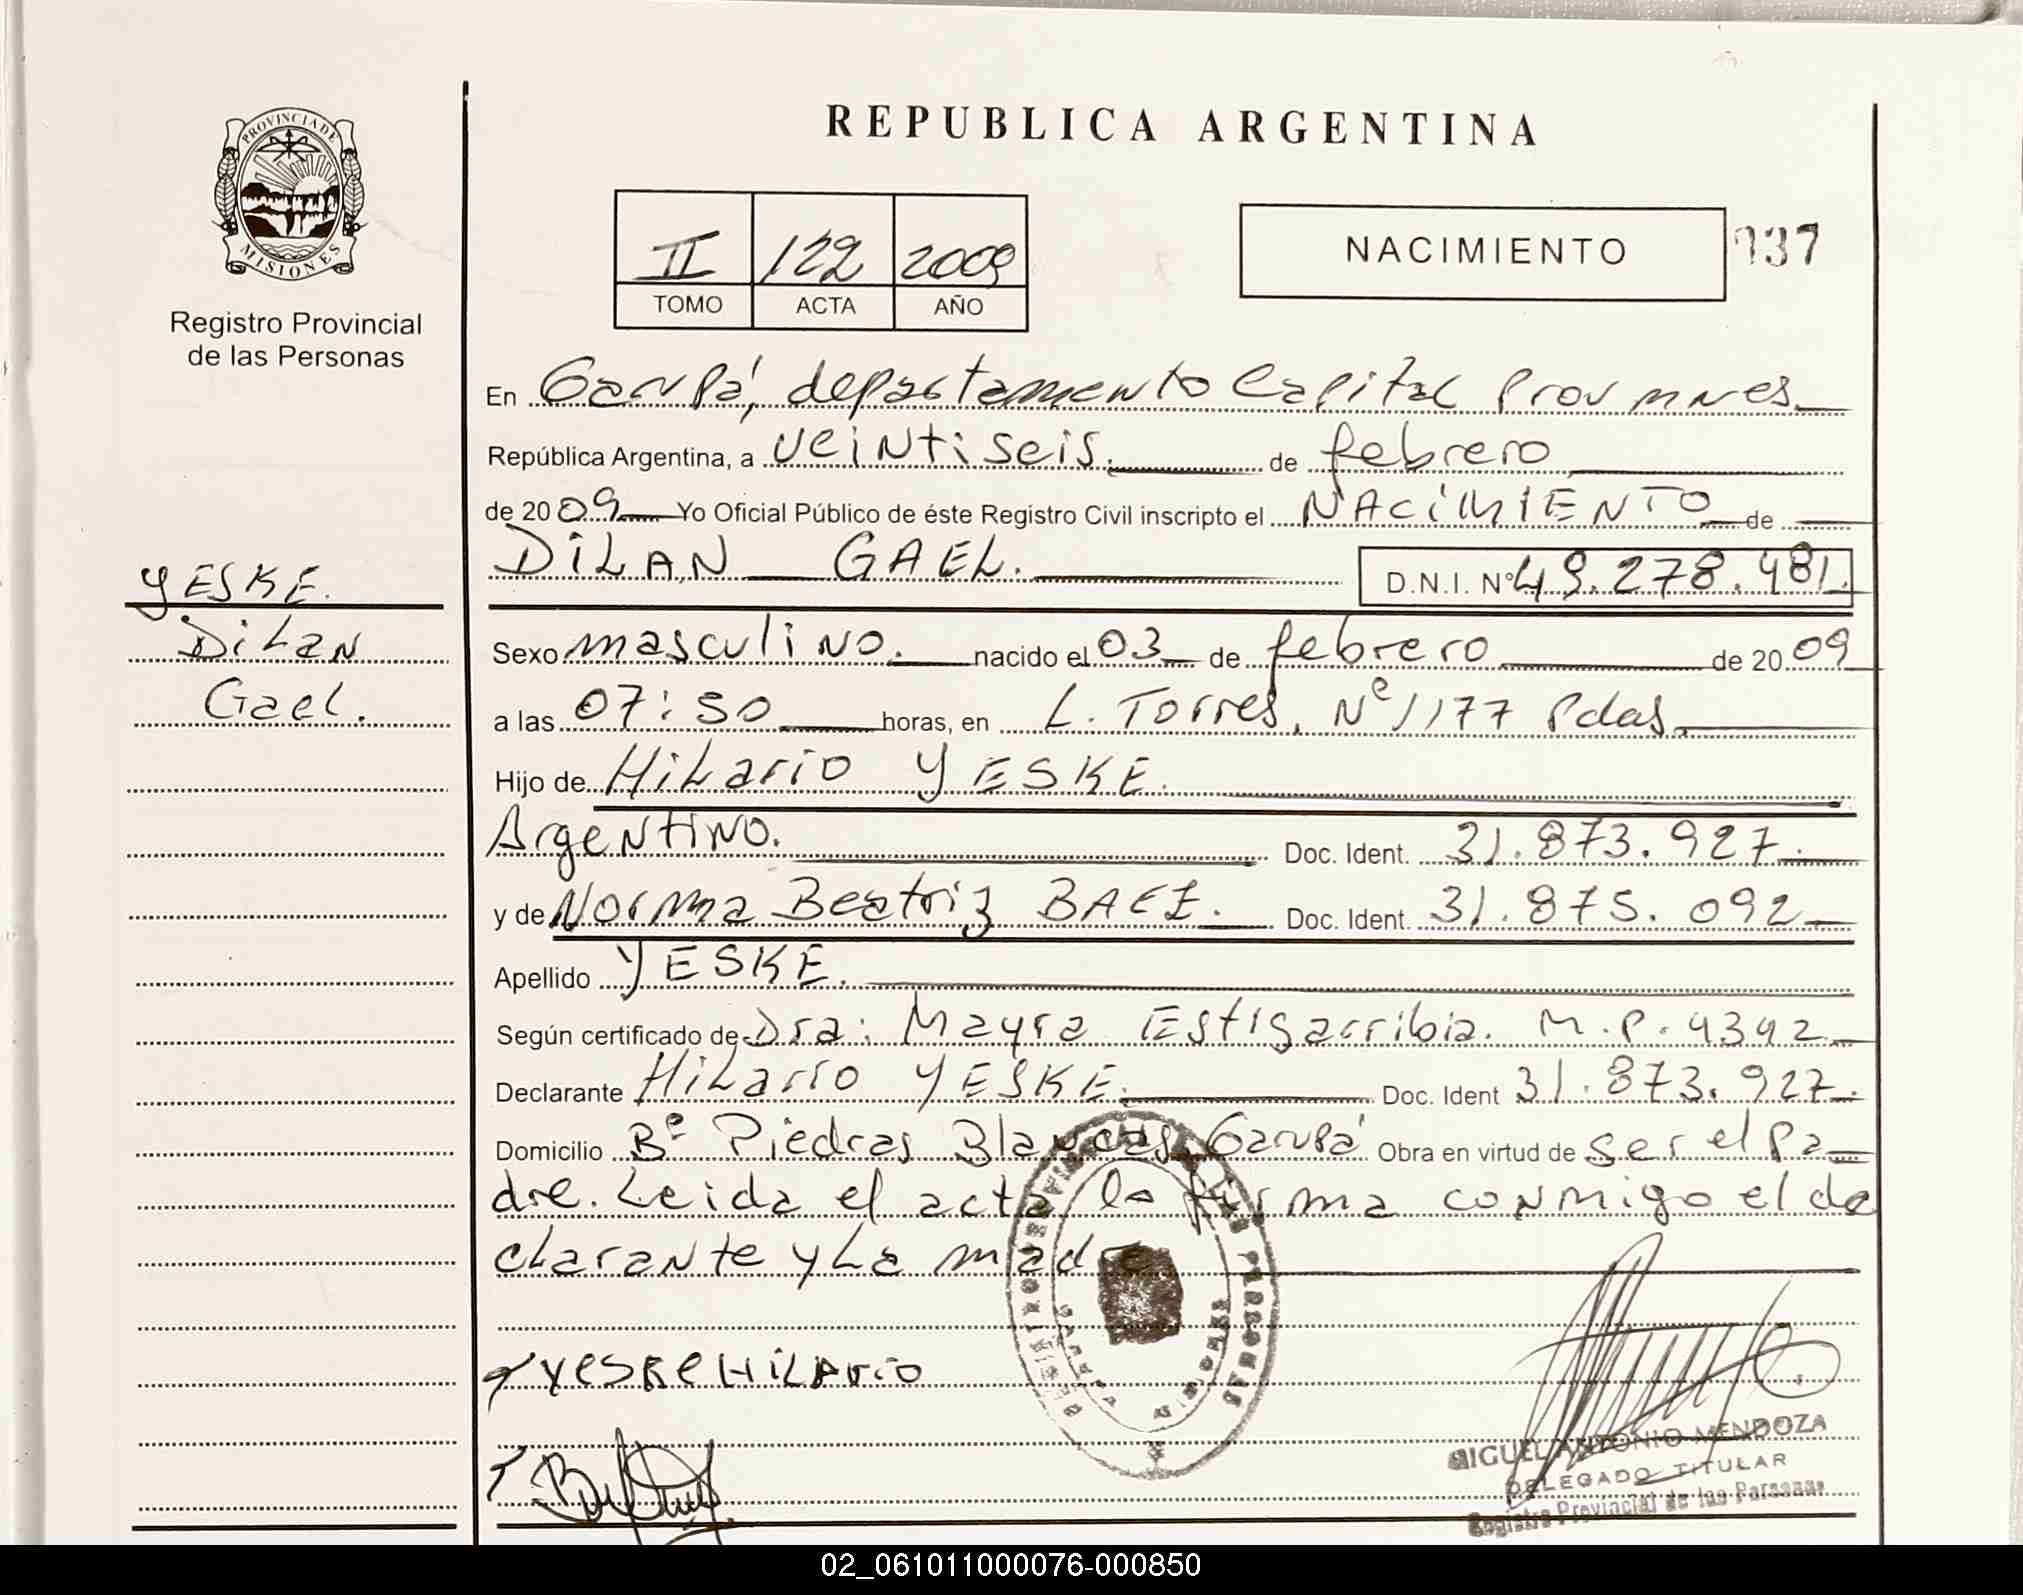 REPUBLICA ARGENTINA
PROVINCIA DE
MISIONES
Registro Provincial
de las Personas
II 122 2009
TOMO ACTA AÑO
NACIMIENTO 937
En Garupá, departamento Capital Prov mnes.
República Argentina, a veintiseis. de febrero
de 2009 Yo Oficial Público de éste Registro Civil inscripto el NACIMIENTO de
DILAN GAEL. D.N.I. Nº 49.278.481.
YESKE.
Dilan
Gael.
Sexo masculino. nacido el 03 de febrero de 2009
a las 07:50 horas, en L. Torres, Nº 1177 Pdas.
Hijo de Hilario YESKE.
Argentino. Doc. Ident. 31.873.927.
y de Norma Beatriz BAEZ. Doc. Ident. 31.875.092
Apellido YESKE.
Según certificado de Dra: Mayra Estigarribia. M.P. 4342
Declarante Hilario YESKE. Doc. Ident 31.873.927.
Domicilio Bº Piedras Blancas, Garupá Obra en virtud de ser el pa-
dre. Leida el acta la firma conmigo el de
clarante y la madre
YESKE HILARIO
MIGUEL ANTONIO MENDOZA
DELEGADO TITULAR
Registro Provincial de las Personas
02_061011000076-000850